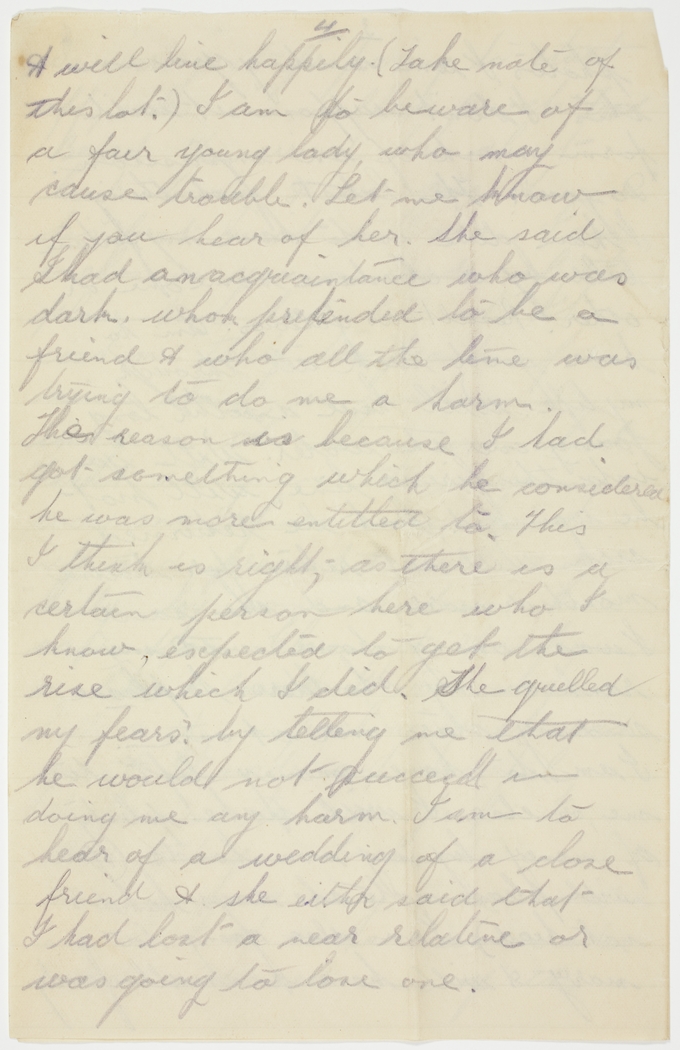 4.
& will live happily. (Take note of
this lot.) I am to beware of
a fair young lady who may
cause trouble. Let me know
if you hear of her. She said
I had an acquaintance who was
dark. whom pretended to be a
friend & who all the time was
trying to do me a harm.
The reason is because I had
got something which he considered
he was more entitled to. This
I think is right, as there is a
certain person here who I
know, expected to get the
rise which I did. She quelled
my fears. by telling me that
he would not succeed in
doing me any harm. I am to
hear of a wedding of a close
friend & she either said that
I had lost a near relative or
was going to lose one.